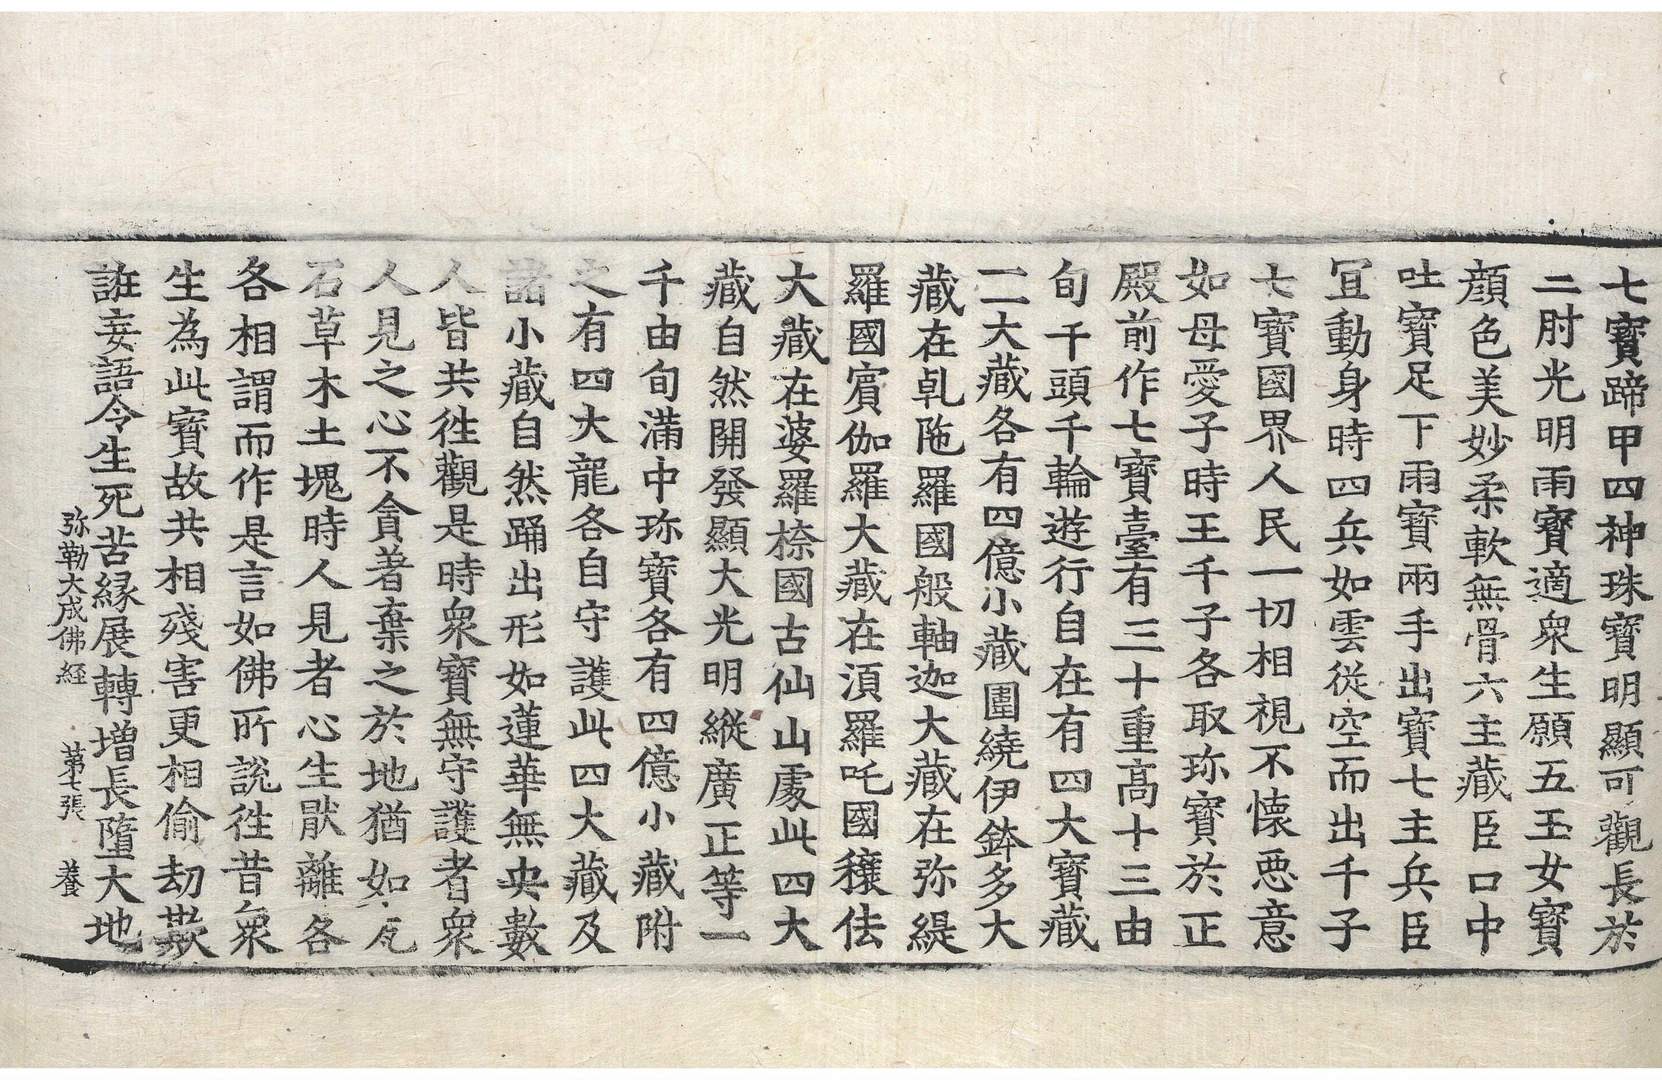 七寶蹄甲四神珠寶明顯可觀長於
二肘光明雨寶適衆生願五王女寶
顏色美妙柔軟無骨六主藏臣口中
吐寶足下雨寶兩手出寶七主兵臣
宜動身時四兵如雲從空而出千子
七寶國界人民一切相視不懷惡意
如母愛子時王千子各取珎寶於正
殿前作七寶臺有三十重高十三由
旬千頭千輪遊行自在有四大寶藏
一一大藏各有四億小藏圍繞伊鉢多大
藏在乹陁羅國般軸迦大藏在弥緹
羅國賔伽羅大藏在湏羅吒國穰佉
大藏在婆羅㮈國古仙山處此四大
藏自然開發顯大光明縱廣正等一
千由旬滿中珎寶各有四億小藏附
之有四大龍各自守護此四大藏及
諸小藏自然踊出形如蓮華無央數
人皆共徃觀是時衆寶無守護者衆
人見之心不貪著棄之於地猶如瓦
石草木土塊時人見者心生猒離各
各相謂而作是言如佛所說徃昔衆
生為此寶故共相殘害更相偷劫欺
誑妄語令生死苦縁展轉增長墮大地
弥勒大成佛經 第七張 養